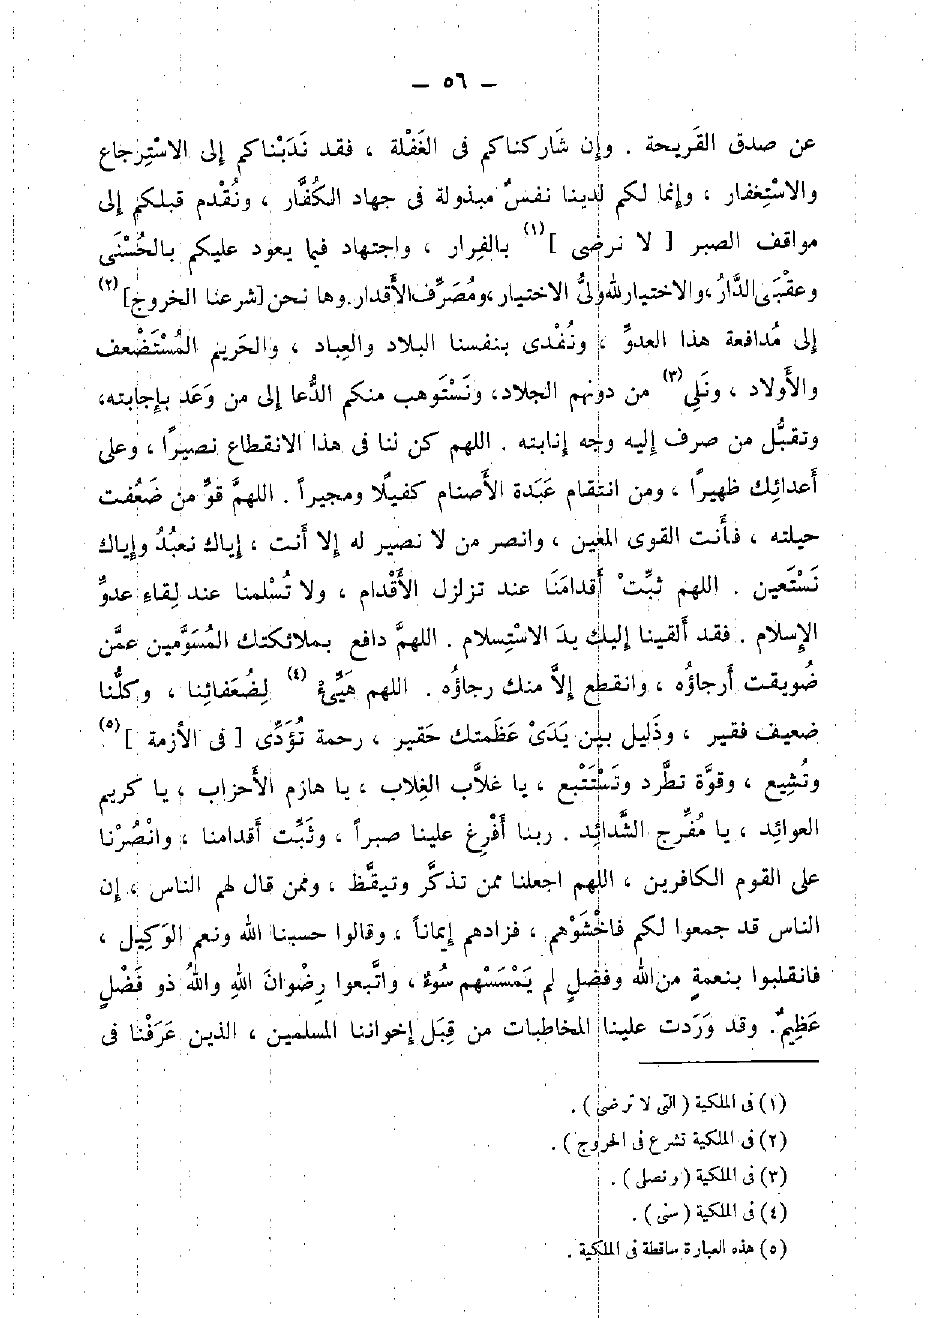 — ٥٦ —
عن صدق القَريحة . وإن شَاركناكم فى الغَفْلة ، فقد نَدَبْناكم إلى الاسْتِرجاع
والاسْتِغفار ، وإنما لكم لدينا نفسٌ مبذولة فى جهاد الكُفَّار ، ونُقْدم قبلكم إلى
مواقف الصبر [ لا نرضى ] (١) بالفِرار ، واجتهاد فيما يعود عليكم بالحُسْنَى
وعقْبَى الدَّارُ ، والاختيار لله ولىُّ الاختيار ، ومُصَرِّف الأَقدار . وها نحن [شرعنا الخروج] (٢)
إلى مُدافعة هذا العدوِّ ، ونُفْدى بنفسنا البلاد والعِباد ، والحَريم المُسْتَضْعف
والأَولاد ، ونَلِى (٣) من دونهم الجلاد، ونَسْتَوهب منكم الدُّعا إلى من وَعَد بإجابته،
وتقبُّل من صرف إليه وجه إنابته . اللهم كن لنا فى هذا الانقطاع نصيرًا ، وعلى
أعدائِك ظهيراً ، ومن انتقام عَبَدة الأَصنام كَفيلًا ومجيراً . اللهمَّ قوِّ من ضَعُفت
حيلته ، فأَنت القوى المُعين ، وانصر من لا نصير له إلا أَنت ، إياك نعبُدُ وإياك
نَسْتَعين . اللهم ثبِّتْ أَقدامَنَا عند تزلزل الأَقْدام ، ولا تُسْلمنا عند لِقاءِ عدوِّ
الإسلام . فقد أَلقينا إليك يدَ الاسْتِسلام . اللهمَّ دافع بملائكتك المُسَوَّمين عمَّن
ضُويقت أَرجاؤه ، وانقطع إلاَّ منك رجاؤُه . اللهم هَيِّئْ (٤) لِضُعَفائِنا ، وكلُّنا
ضعيف فقير ، وذَليل بين يَدَىْ عَظَمتك حَقير ، رحمة تُؤَدِّى [ فى الأزمة ] (٥)
وتُشِيع ، وقوَّة تطَّرد وتَسْتَتْبع ، يا غلاَّب الغِلاب ، يا هازم الأَحزاب ، يا كريم
العوائِد ، يا مُفَرِّج الشَّدائِد . ربنا أَفْرِغ علينا صبراً ، وثَبِّت أَقدامنا ، وانْصُرْنا
على القوم الكافرين ، اللهم اجعلنا ممن تذكَّر وتيقَّظ ، وممن قال لهم الناس ، إن
الناس قد جمعوا لكم فاخْشَوْهم ، فزادهم إيماناً ، وقالوا حسبنا الله ونعم الوَكِيل ،
فانقلبوا بنعمةٍ من الله وفضلٍ لم يَمْسَسْهم سُوءٌ ، واتَّبعوا رِضْوانَ اللهِ واللهُ ذو فَضْلٍ
عَظِيمٌ. وقد وَرَدت علينا المخاطبات من قِبَل إخواننا المسلمين ، الذين عَرَفْنا فى
(١) فى الملكية ( التى لا ترضى ) .
(٢) فى الملكية نشرع فى الخروج ) .
(٣) فى الملكية ( ونصلى ) .
(٤) فى الملكية ( سنى ) .
(٥) هذه العبارة ساقطة فى الملكية .